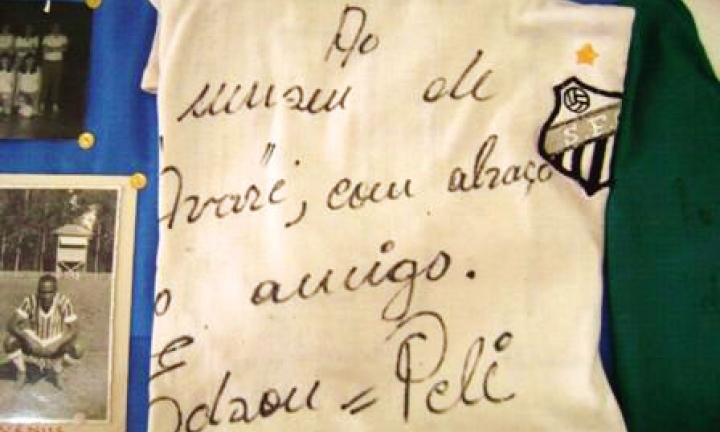 Ao
museu de
"Avaré", com abraço
o amigo.
E
Edson = Pelé
S F